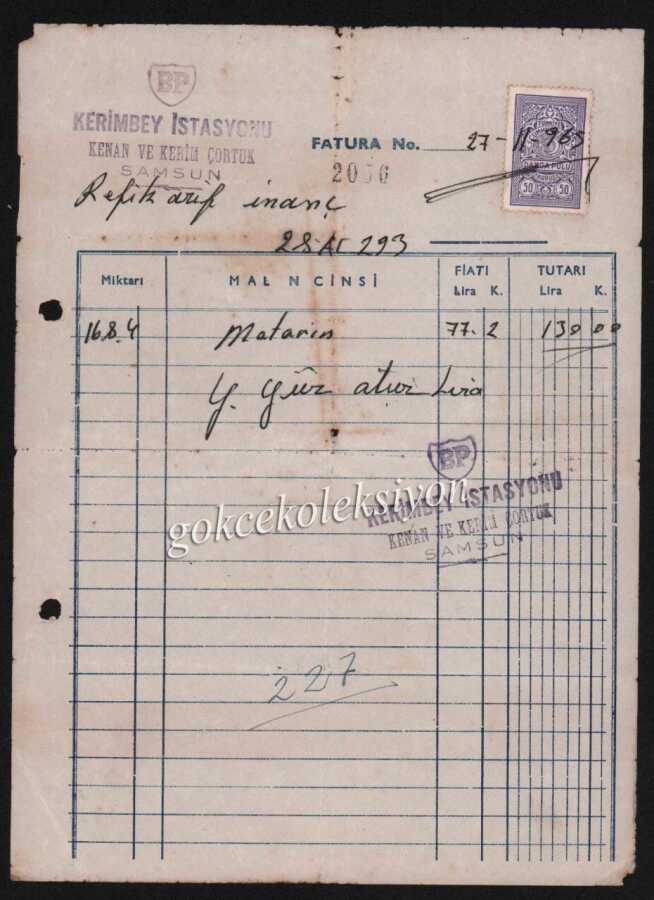 BP
KERİMBEY İSTASYONU
KENAN VE KERİM ÇORTUK
SAMSUN
FATURA No.
2056
27-11-965
DAMGA PULU
50 50
Refik arif inanç
28 Aİ 293
Miktarı MAL N CİNSİ FİATI Lira K. TUTARI Lira K.
168.4 Motorin 77.2 130 00
Y. Yüz otuz Lira
BP
KERİMBEY İSTASYONU
KENAN VE KERİM ÇORTUK
SAMSUN
gokcekoleksiyon
227